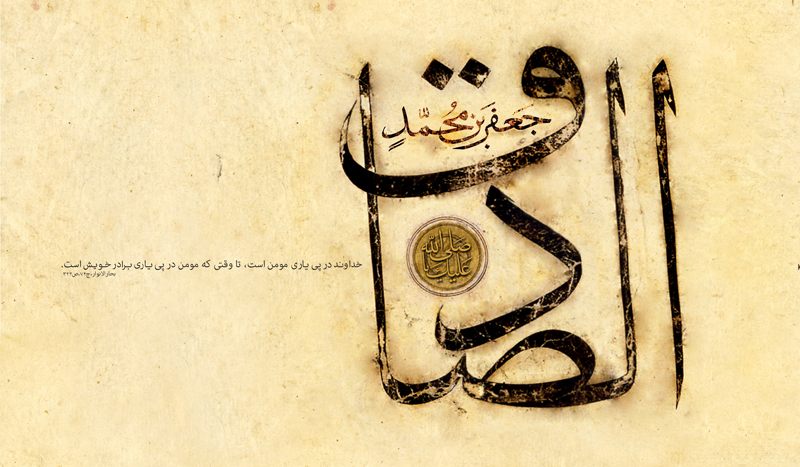 الصادق
جَعفَرِبنِ مُحَمَّدٍ
صلی الله
علیک یا
خداوند در پی یاری مومن است، تا وقتی که مومن در پی یاری برادر خویش است.
بحارالانوار،ج۷۴،ص۳۲۲